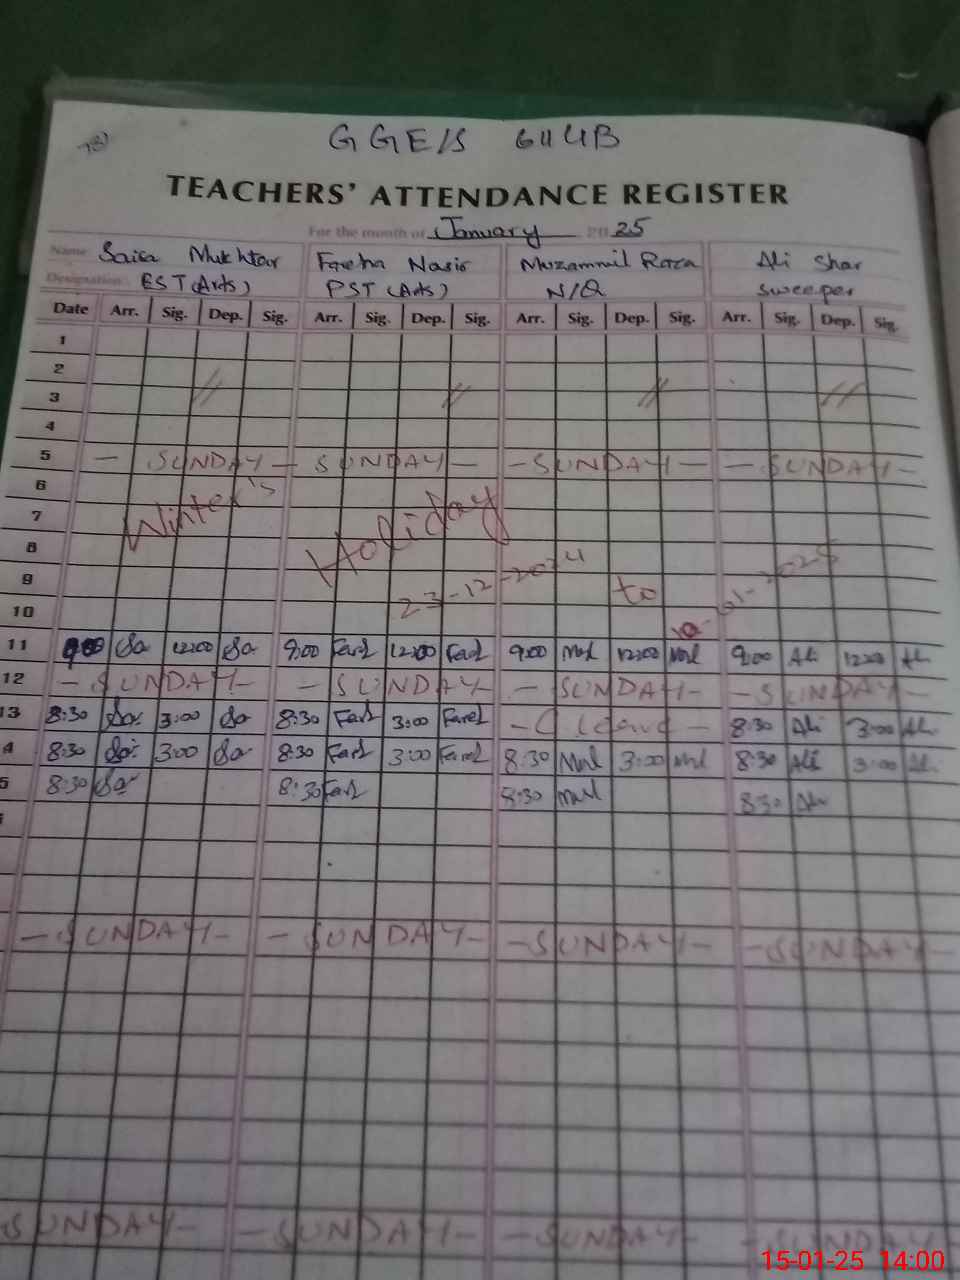 GGE/S 644B
TEACHERS' ATTENDANCE REGISTER
For the month of January 2025
Name Saira Mukhtar Fareha Nasir Muzammil Raza Ali Shar
Designation EST (Arts) PST (Arts) N/Q Sweeper
Date Arr. Sig. Dep. Sig. Arr. Sig. Dep. Sig. Arr. Sig. Dep. Sig. Arr. Sig. Dep. Sig.
1
2
3
4
5 - SUNDAY - SUNDAY - - SUNDAY - - SUNDAY -
6
7 Winter's Holiday
8
9 23-12-2024 to 10-01-2025
10
11 9:00 Sa 12:00 Sa 9:00 Fard 12:00 Fard 9:00 Mul 12:00 Mul 9:00 Ali 12:00 Ali
12 - SUNDAY - - SUNDAY - - SUNDAY - - SUNDAY -
13 8:30 Sa 3:00 Sa 8:30 Fard 3:00 Fard - C leave - 8:30 Ali 3:00 Ali
4 8:30 Sa 3:00 Sa 8:30 Fard 3:00 Fard 8:30 Mul 3:00 Mul 8:30 Ali 3:00 Ali
5 8:30 Sa 8:30 Fard 8:30 Mul 8:30 Ali
- SUNDAY - - SUNDAY - - SUNDAY - - SUNDAY -
SUNDAY - - SUNDAY - - SUNDAY - - SUNDAY
15-01-25 14:00